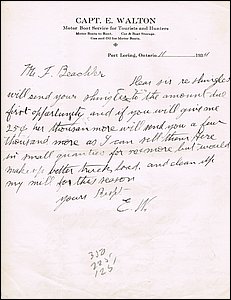 CAPT. E. WALTON
Motor Boat Service for Tourists and Hunters
Motor Boats to Rent. Car & Boat Storage.
Gas and Oil for Motor Boats.
Port Loring, Ontario 11 193
Mr. F. Beachler
Dear sir re shingles
will send your shingles to the amount due
first opportunity, and if you will give me
25¢ per thousand more will send you a few
thousand more as I can sell them here
in small quantities for more but would
make up better truck load, and clean up
my mill for this season
yours Respt
E. W.
350
225
125